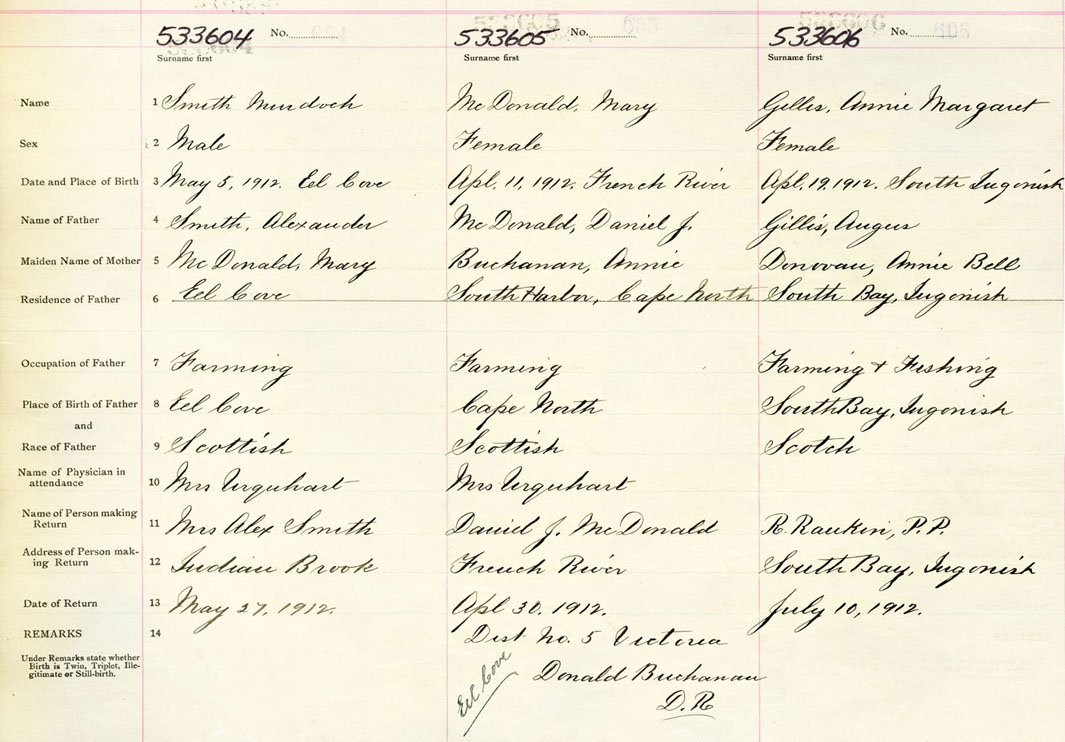 533604 No. 604 533605 No. 605 533606 No. 606
Surname first Surname first Surname first
Name 1 Smith Murdoch McDonald, Mary Gillis, Annie Margaret
Sex 2 Male Female Female
Date and Place of Birth 3 May 5, 1912. Eel Cove Apl. 11, 1912. French River Apl. 19, 1912. South Ingonish
Name of Father 4 Smith, Alexander McDonald, Daniel J. Gillis, Angus
Maiden Name of Mother 5 McDonald, Mary Buchanan, Annie Donovan, Annie Bell
Residence of Father 6 Eel Cove South Harbor, Cape North South Bay, Ingonish
Occupation of Father 7 Farming Farming Farming + Fishing
Place of Birth of Father 8 Eel Cove Cape North South Bay, Ingonish
and
Race of Father 9 Scottish Scottish Scotch
Name of Physician in
attendance 10 Mrs Urquhart Mrs Urquhart
Name of Person making
Return 11 Mrs Alex Smith Daniel J. McDonald R. Rankin, P.P.
Address of Person mak-
ing Return 12 Indian Brook French River South Bay, Ingonish
Date of Return 13 May 27, 1912. Apl 30. 1912. July 10, 1912.
REMARKS 14 Dist No. 5 Victoria
Under Remarks state whether
Birth is Twin, Triplet, Ille-
gitimate or Still-birth.
Eel Cove Donald Buchanan
D.R